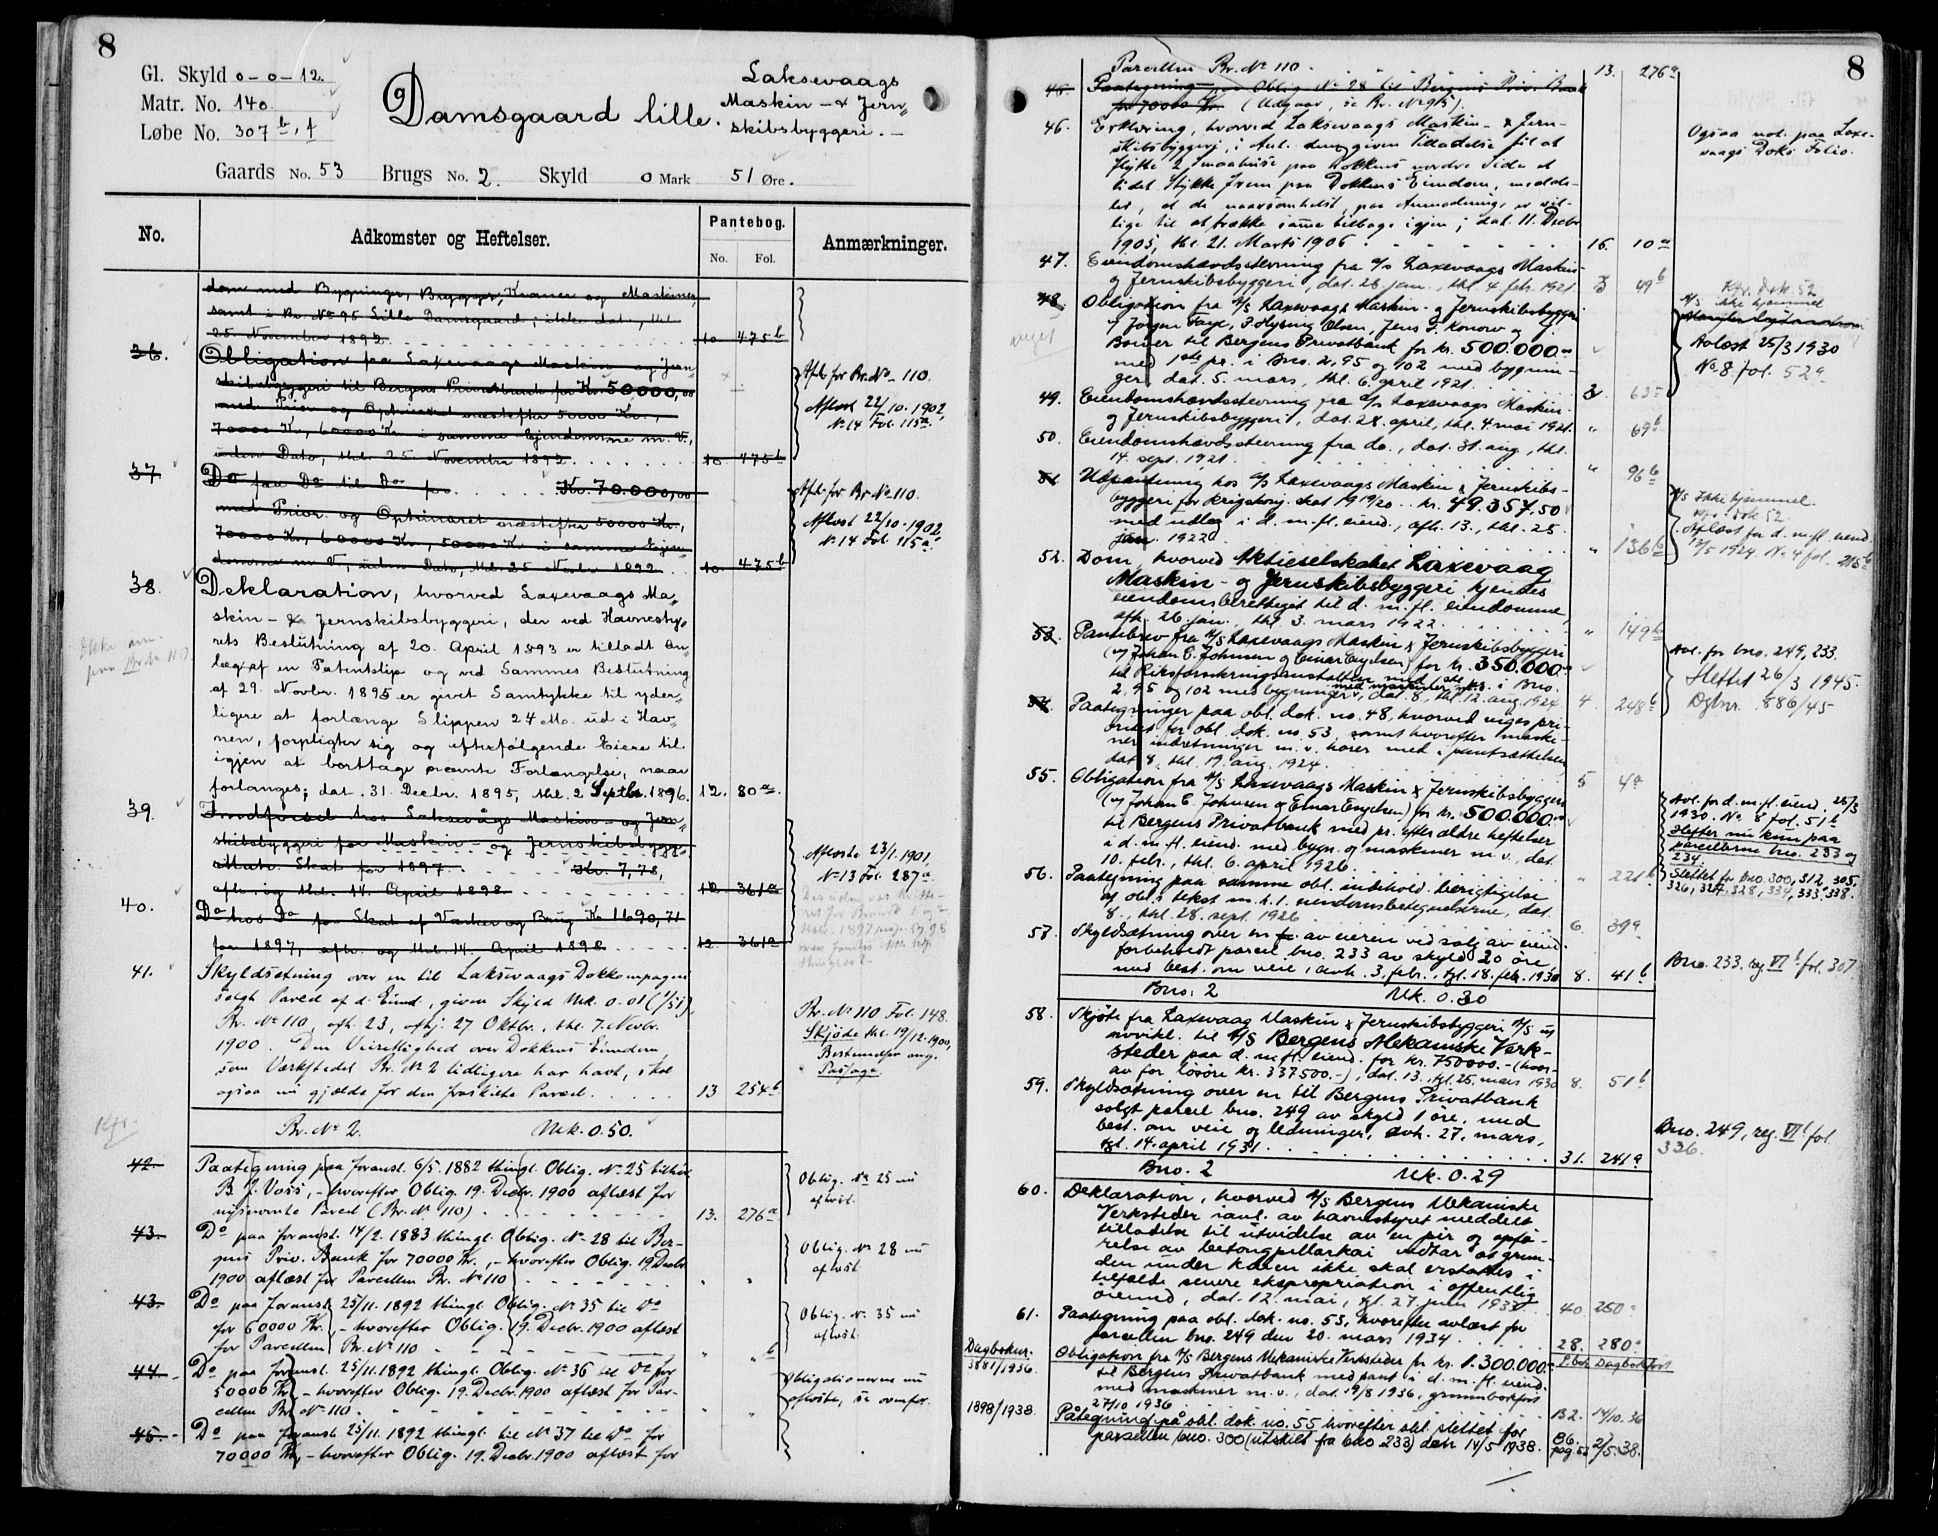 8
Gl. Skyld 0-0-12.
Matr. No. 140.
Løbe No. 307 b, f
Damsgaard lille.
Laksevaags
Maskin- & Jern-
skibsbyggeri.-
Gaards No. 53 Brugs No. 2. Skyld 0 Mark 51 Øre.
No. Adkomster og Heftelser. Pantebog. Anmærkninger.
No. Fol.
dom med Bygninger, Brygger, Kraner og Maskiner,
samt i Br. No 95 Lille Damsgaard; ikke dat., thl.
25 November 1892. 10 475 b
36. Obligation fra Laxevaags Maskin og Jern-
skibsbyggeri til Bergens Privatbank for Kr. 50000,00
med Prior. og Optrinsret næstefter 50000 Kr.,
70000 Kr., 60000 Kr. i samme Ejendomme m. V.,
uden Dato, thl. 25 November 1892. 10. 475 b
Afl. for Br. No - 110.
Aflæst 22/10. 1902,
No 14 Fol. 115 a.
37 Do fra Do til Do for Kr. 70.000,00
med Prior. og Optrinsret næstefter 50000 Kr.,
70000 Kr., 60000 Kr., 50000 Kr. i samme Ejen-
domme m V., uden Dato, thl. 25 Novbr 1892. 10. 475 b
Afl. for Br No 110.
Aflæst 22/10. 1902,
No 14 Fol. 115 a.
38. Deklaration, hvorved Laxevaags Ma-
skin- & Jernskibsbyggeri, der ved Havnesty-
rets Beslutning af 20. April 1893 er tilladt An-
læg af en Patentslip og ved Sammes Beslutning
af 29. Novbr. 1895 er givet Samtykke til yder-
ligere at forlænge Slippen 24 Mo. ud i Hav-
nen, forpligter sig og efterfølgende Eiere til
igjen at borttage nævnte Forlængelse, naar
forlanges; dat. 31. Decbr. 1895, thl. 2 Septbr. 1896. 12. 80 a.
Ikke anm.
paa Br. No. 110
39. Indførsel hos Laksevågs Maskin- og Jern-
skibsbyggeri for Maskin- og Jernskibsbygg-
Matr. Skat for 1897. Kr. 7,78,
afh. og thl. 14. April 1898. 12 361 a
Aflæste 23/1. 1901,
No 13 Fol. 287 a.
40. Do hos Do for Skat af Værker og Brug Kr. 1690,71
for 1897, afh. og thl. 14. April 1898. 12. 361 a
41. Skyldsætning over en til Laksevaags Dokkompagni
solgt Parcel af d. Eiend., given Skyld Mrk. 0.01 (1/51),
Br. No 110, afh. 23, afhj. 27 Oktbr., thl. 7. Novbr.
1900. Den Veirettighed over Dokkens Eiendom
som Værkstedet Br. No 2 tidligere har havt, skal
ogsaa nu gjælde for den fraskilte Parcel. 13 254 b
Br. No 110 Fol. 148.
Skjøde thl. 19/12. 1900,
Bestemmelser ang.
Passage.
Kfr.
Br. No 2. Mrk. 0.50.
42. Paategning paa foranst. 6/5. 1882 thingl. Oblig. No 25 til
B. J. Voss, - hvorefter Oblig. 19. Decbr. 1900 aflæst for
nysnævnte Parcel (Br. No 110). 13. 276 a
Oblig. No 25 nu
aflæst.
43. Do paa foranst. 14/2. 1883 thingl. Oblig. No 28 til Ber-
gens Priv. Bank for 70000 Kr., - hvorefter Oblig. 19. Decbr
1900 aflæst for Parcellen Br. No 110 " "
Oblig. No 28 nu
aflæst.
43. Do paa foranst. 25/11. 1892 thingl. Oblig. No 35 til Do
for 60000 Kr., - hvorefter Oblig. 19. Decbr. 1900 aflæst
for Parcellen Br. No 110 " " b
Oblig. No. 35 nu
aflæst.
44. Do paa foranst. 25/11. 1892 thingl. Oblig. No 36 til Do for
50000 Kr. - hvorefter Oblig. 19. Decbr. 1900 aflæst for Par-
cellen Br. No 110. " "
Obligationerne nu
aflæste, se ovenfor.
45. Do paa foranst. 25/11. 1892 thingl. til No 37 til Do for
70000 Kr., - hvorefter Oblig. 19. Decbr. 1900 aflæst for
8
Parcellen Br. No 110. 13. 276 a
45. Paategning paa Oblig. No 28 til Bergens Priv. Bank
for 70000 Kr. (Udgaar, se Br. No 95).
46. Erklæring, hvorved Laksevaags Maskin- & Jern-
skibsbyggeri, i Anl. dem given Tilladelse til at
flytte 2 smaahuse paa Dokkens nordre Side et
lidet Stykke frem paa Dokkens Eiendom, medde-
ler, at de naarsomhelst, paa Anmodning, er vil-
lige til at trække samme tilbage igjen; dat. 11. Decbr
1905, thl. 21. Marts 1906. 16. 10 a
Ogsaa not. paa Laxe-
vaags Doks Folio.
47. Eiendomshævdsstevning fra A/S Laxevaags Maskin-
og Jernskibsbyggeri, dat. 26 jan., thl. 4 feb. 1921. 3 49 b
48. Obligation fra A/S Laxevaags Maskin- og Jernskibsbyggeri
v/ Jørgen Faye, J. Hysing Olsen, Jens J. Konow og
Bouer til Bergens Privatbank for kr. 500.000.00
med 1ste pr. i Bno. 2, 95 og 102 med bygnin-
ger, dat. 5. mars, thl. 6. april 1921. 3. 63
viget
Kfr. Dok. 52
A/S ikke hjemmel
Avlæst 25/3 1930
No. 8. fol. 52 a.
49. Eiendomshævdsstevning fra A/S Laxevaags Maskin-
og Jernskibsbyggeri, dat. 28. april, thl. 4. mai 1921. " 69 b
50. Eiendomshævdsstevning fra do., dat. 31. aug., thl.
14. sept. 1921. " 96 b
51 Utpantning hos A/S Laxevaags Maskin & Jernskibs-
byggeri for krigskonj. skat 1919/20 .. kr. 49.357.50
med utlæg i d. m. fl. eiend., afh. 13., thl. 25.
jan. 1922. " 136 b
A/S Ikke hjemmel
kfr. Dok 52.
Aflæst for d. m. fl. eiend.
12/5 1924. No. 4 fol. 215 b
52. Dom, hvorved Aktieselskabet Laxevaag
Maskin- og Jernskibsbyggeri kjendes
eiendomsberettiget til d. m. fl. eiendomme,
afh. 26. jan., thl. 3. mars 1922. " 149 b
53. Pantebrev fra A/S Laxevaags Maskin & Jernskibsbyggeri
(v/ Johan C. Johnsen og Einar Engelsen) for kr. 350.000.00
til Riksforsikringsanstalten med 1ste pr. i Bno.
2, 95 og 102 med bygninger med maskiner m. v., dat. 8., thl. 12. aug. 1924 4. 248 b
Avl. for bno. 249, 233.
Slettet 26/3 1945.
Dgbnr. 886/45
54. Paategninger paa obl. dok. no. 48, hvorved viges pri-
oritet for obl. dok. no. 53, samt hvorefter maski-
ner, indretninger m. v. hører med i pantsættelsen,
dat. 8., thl. 19. aug. 1924. 5 4 a
55. Obligation fra A/S Laxevaags Maskin & Jernskibsbyggeri
(v/ Johan C. Johnsen og Einar Engelsen) for kr. 500.000.00
til Bergens Privatbank med pr. efter ældre heftelser
i d. m. fl. eiend. med bygn. og maskiner m. v., dat.
10. febr., thl. 6. april 1926. " 221 b
Avl. for d. m. fl. eiend. 25/3
1930. No. 8 fol. 51 b
Hefter nu kun paa
parcellerne bno. 233 og
234.
Slettet for bno. 300, 312, 305,
326, 327, 328, 334, 333, 338.
56. Paategning paa samme obl. indehold. berigtigelse
af obl.'s tekst m. h. t. eiendomsbetegnelserne, dat.
8., thl. 28. sept. 1926 6. 39 a
57. Skyldsætning over en av eieren ved salg av eiend.
forbeholdt parcel bno. 233 av skyld 20 øre,
med best. om veie, avh. 3. febr., tgl. 18. feb. 1930 8. 41 b
Bno. 233, reg. VI b fol. 307
Bno. 2 Mk. 0.30
58. Skjøte fra Laxevaag Maskin & Jernskibsbyggeri A/S
til A/S Bergens Mekaniske Verk-
steder paa d. m. fl. eiend. for kr. 750000.- (hvor-
av for løsøre kr. 337500.-), dat. 13., tgl. 25. mars 1930 8. 51 b
59. Skyldsætning over en til Bergens Privatbank
solgt parcel bno. 249 av skyld 1 øre, med
best. om veie og ledninger, avh. 27. mars,
tgl. 14. april 1931. 31. 241 a
Bno. 249, reg. VI b fol.
336.
Bno. 2 Mk. 0.29
60. Deklaration, hvorved A/S Bergens Mekaniske
Verksteder i anl. av havnestyret meddelt
tilladelse til utvidelse av en pir og opfø-
relse av betongpillarkai vedtar at grun-
den under kaien ikke skal erstattes i
tilfælde senere ekspropriation i offentlig
øiemed, dat. 12. mai, tgl. 27 juni 1933. 40 260 a
61. Paategning paa obl. dok. no. 53, hvorefter avlæst for
parcellen bno. 249 den 20. mars 1934. 28. 280 a
Dagboknr.
3881/1936. Obligation fra A/S Bergens Mekaniske Verksteder for kr. 1.300.000.00
til Bergens Privatbank med pant i d. m. fl. eiend.
med maskiner m. v., dat. 19/8 1936, grunnbokført
27/10 1936 B2. 14/10. 36
Dagbokført
1898/1938. Påtegning på obl. dok. no. 55 hvorefter obl. slettet for
parsellen bno. 300 (utskilt fra bno 233) den 14/5 1938. 86. pag. 53 2/5. 38.